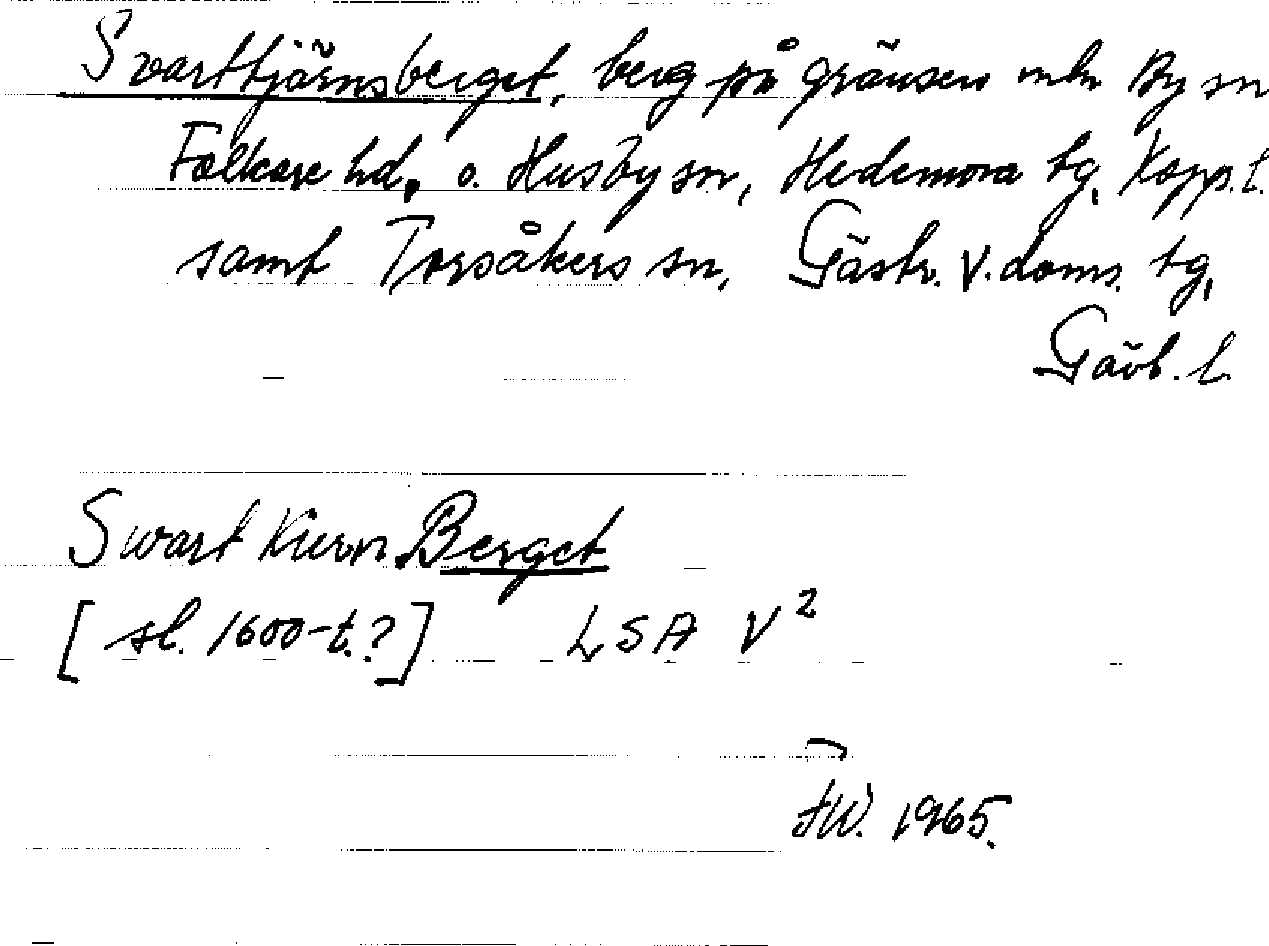 Svarttjärnsberget, berg på gränsen mln By sn
Folkare hd, o. Husby sn, Hedemora tg, Kopp. l.
samt Torsåkers sn, Gästr. V. doms. tg,
Gävl. l.
Swart Kiern Berget
[sl. 1600-t.?] LSA V²
FW. 1965.